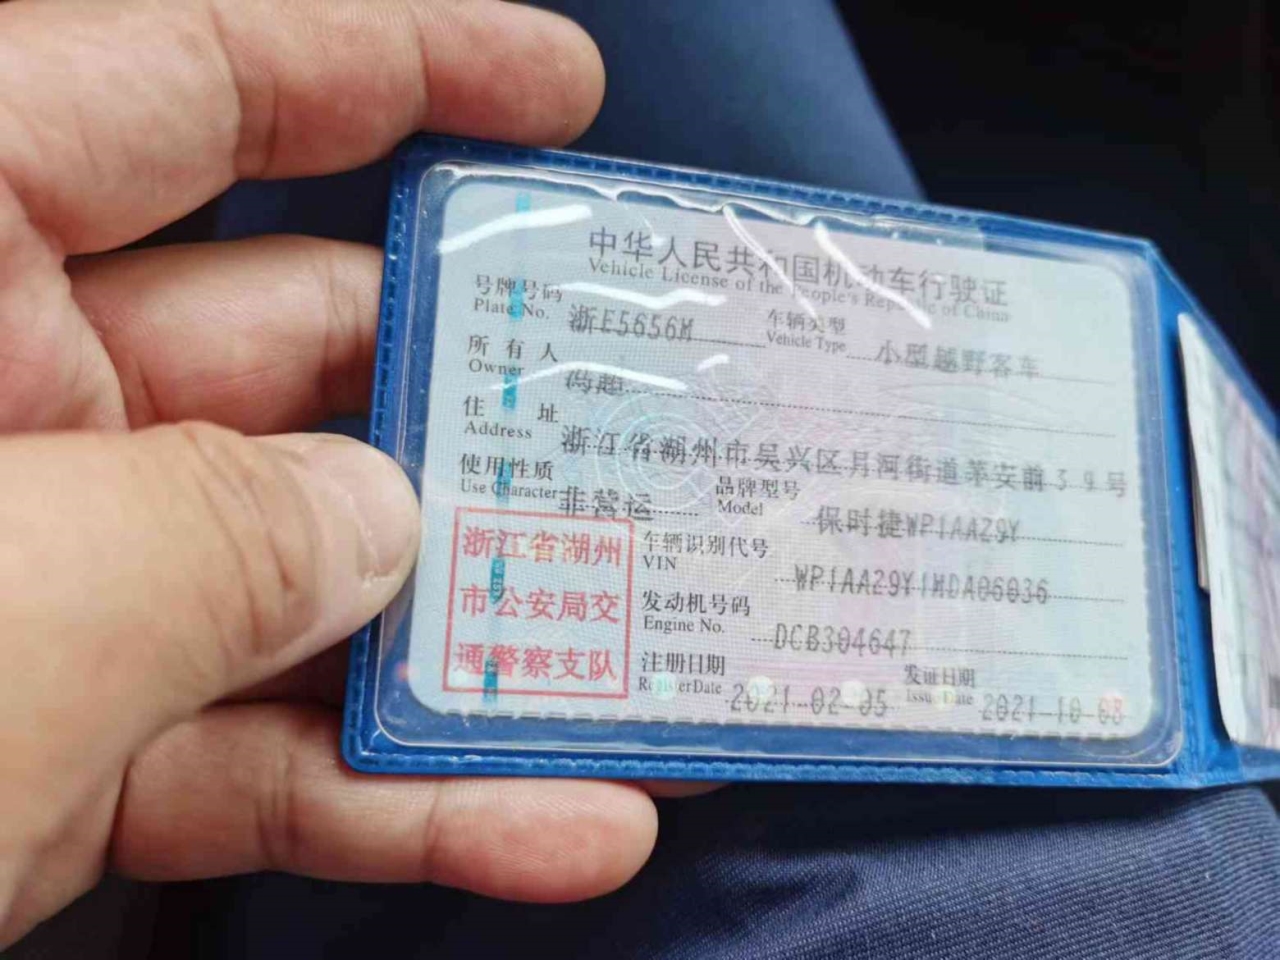 中华人民共和国机动车行驶证
Vehicle License of the People's Republic of China
号牌号码 浙E5656M 车辆类型 小型越野客车
Plate No. Vehicle Type
所有人 冯超
Owner
住址 浙江省湖州市吴兴区月河街道苯安前39号
Address
使用性质 非营运 品牌型号 保时捷WP1AA29Y
Use Character Model
浙江省湖州 车辆识别代号 WP1AA29Y1MDA06036
VIN
市公安局交 发动机号码 DCB304647
Engine No.
通警察支队 注册日期 2021-02-05 发证日期 2021-10-08
Register Date Issue Date